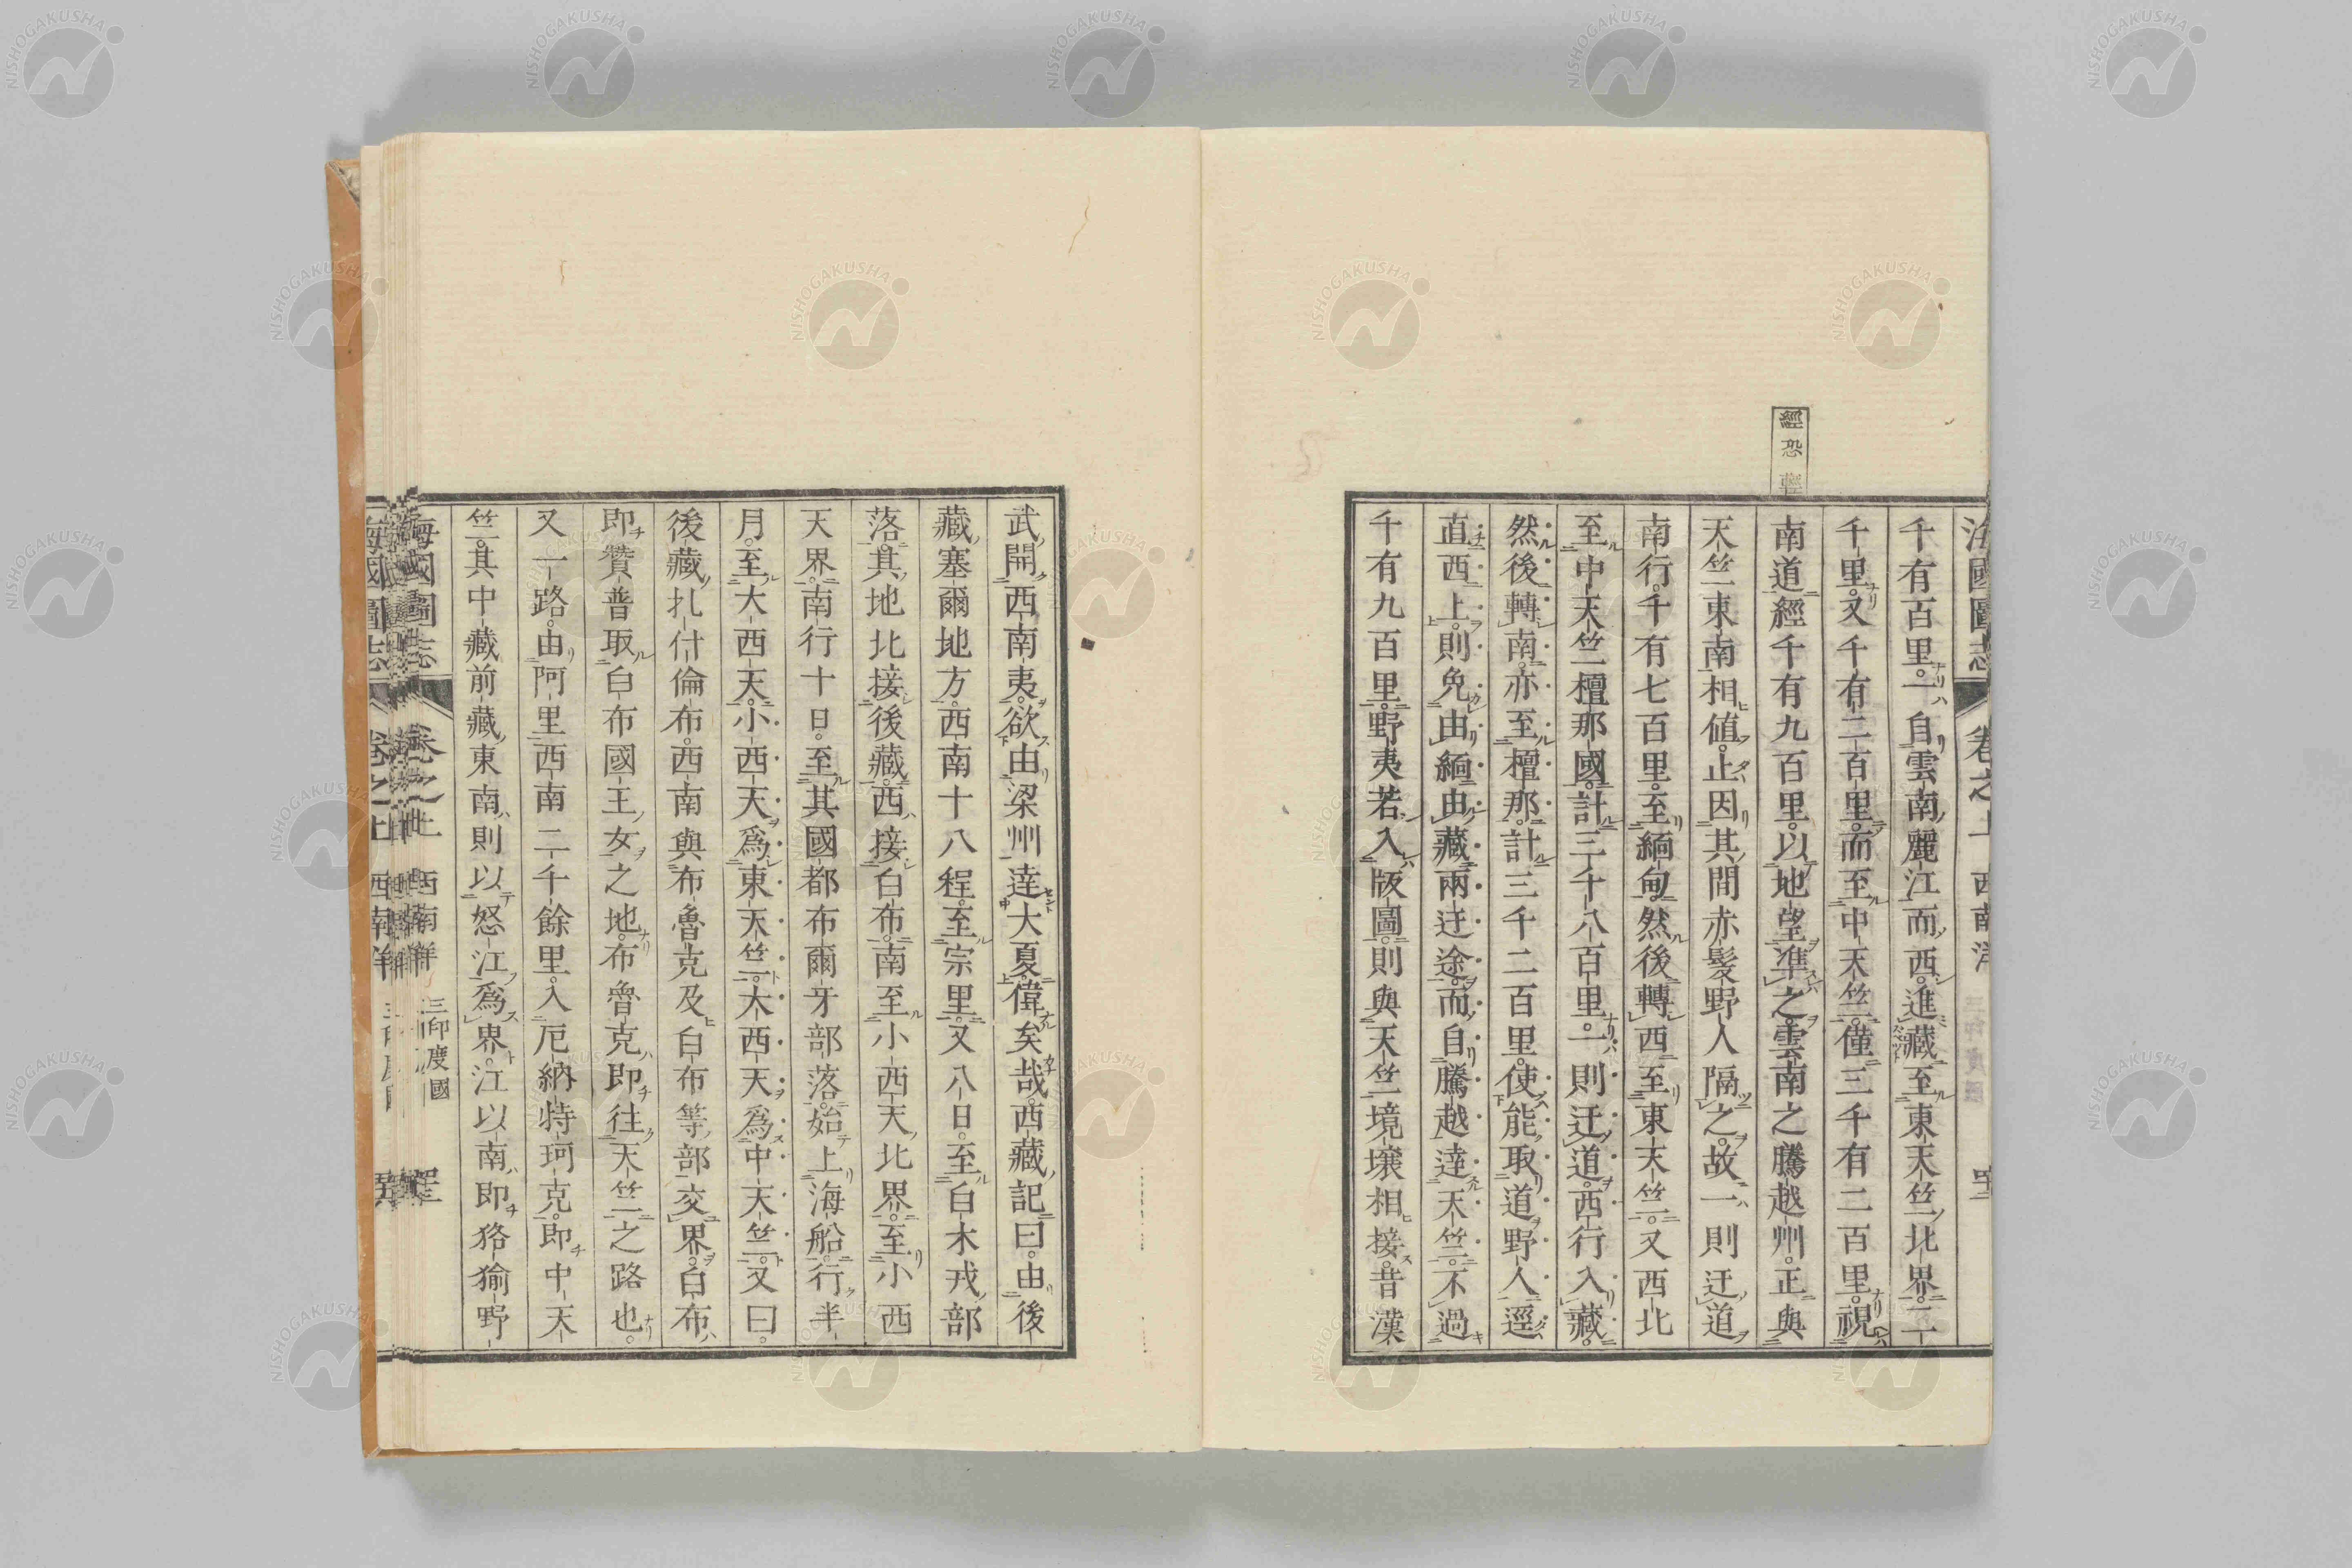 海國圖志 卷之上 西南洋
經恐
千有百里。一自雲南麗江而西。進藏至東天竺北界。二
千里。又千有二百里。而至中天竺。僅三千有二百里。視
南道經千有九百里。以地望準之。雲南之騰越州。正與
天竺東南相值。止因其間赤髮野人隔之。故一則迂道
南行。千有七百里。至緬甸。然後轉西至東天竺。又西北
至中天竺檀那國。計三千八百里。一則迂道西行入藏。
然後轉南。亦至檀那。計三千二百里。使能取道野人逕
直西上。則免由緬由藏兩迂途。而自騰越達天竺。不過
千有九百里。野夷若入版圖。則與天竺境壤相接。昔漢
武開西南夷。欲由梁州達大夏。偉矣哉。西藏記曰。由後
藏塞爾地方。西南十八程。至宗里。又八日。至白木戎部
落。其地北接後藏。西接白布。南至小西天北界。至小西
天界。南行十日。至其國都布爾牙部落。始上海船。行半
月。至大西天。小西天爲東天竺。大西天爲中天竺。又曰。
後藏扎什倫布。西南與布魯克及白布等部交界。白布
即贊普取白布國王女之地。布魯克即往天竺之路也。
又一路。由阿里西南二千餘里。入厄納特珂克。即中天
竺。其中藏前藏東南則以怒江爲界。江以南即狢㺄野
海國圖志 卷之上 西南洋 三印度國